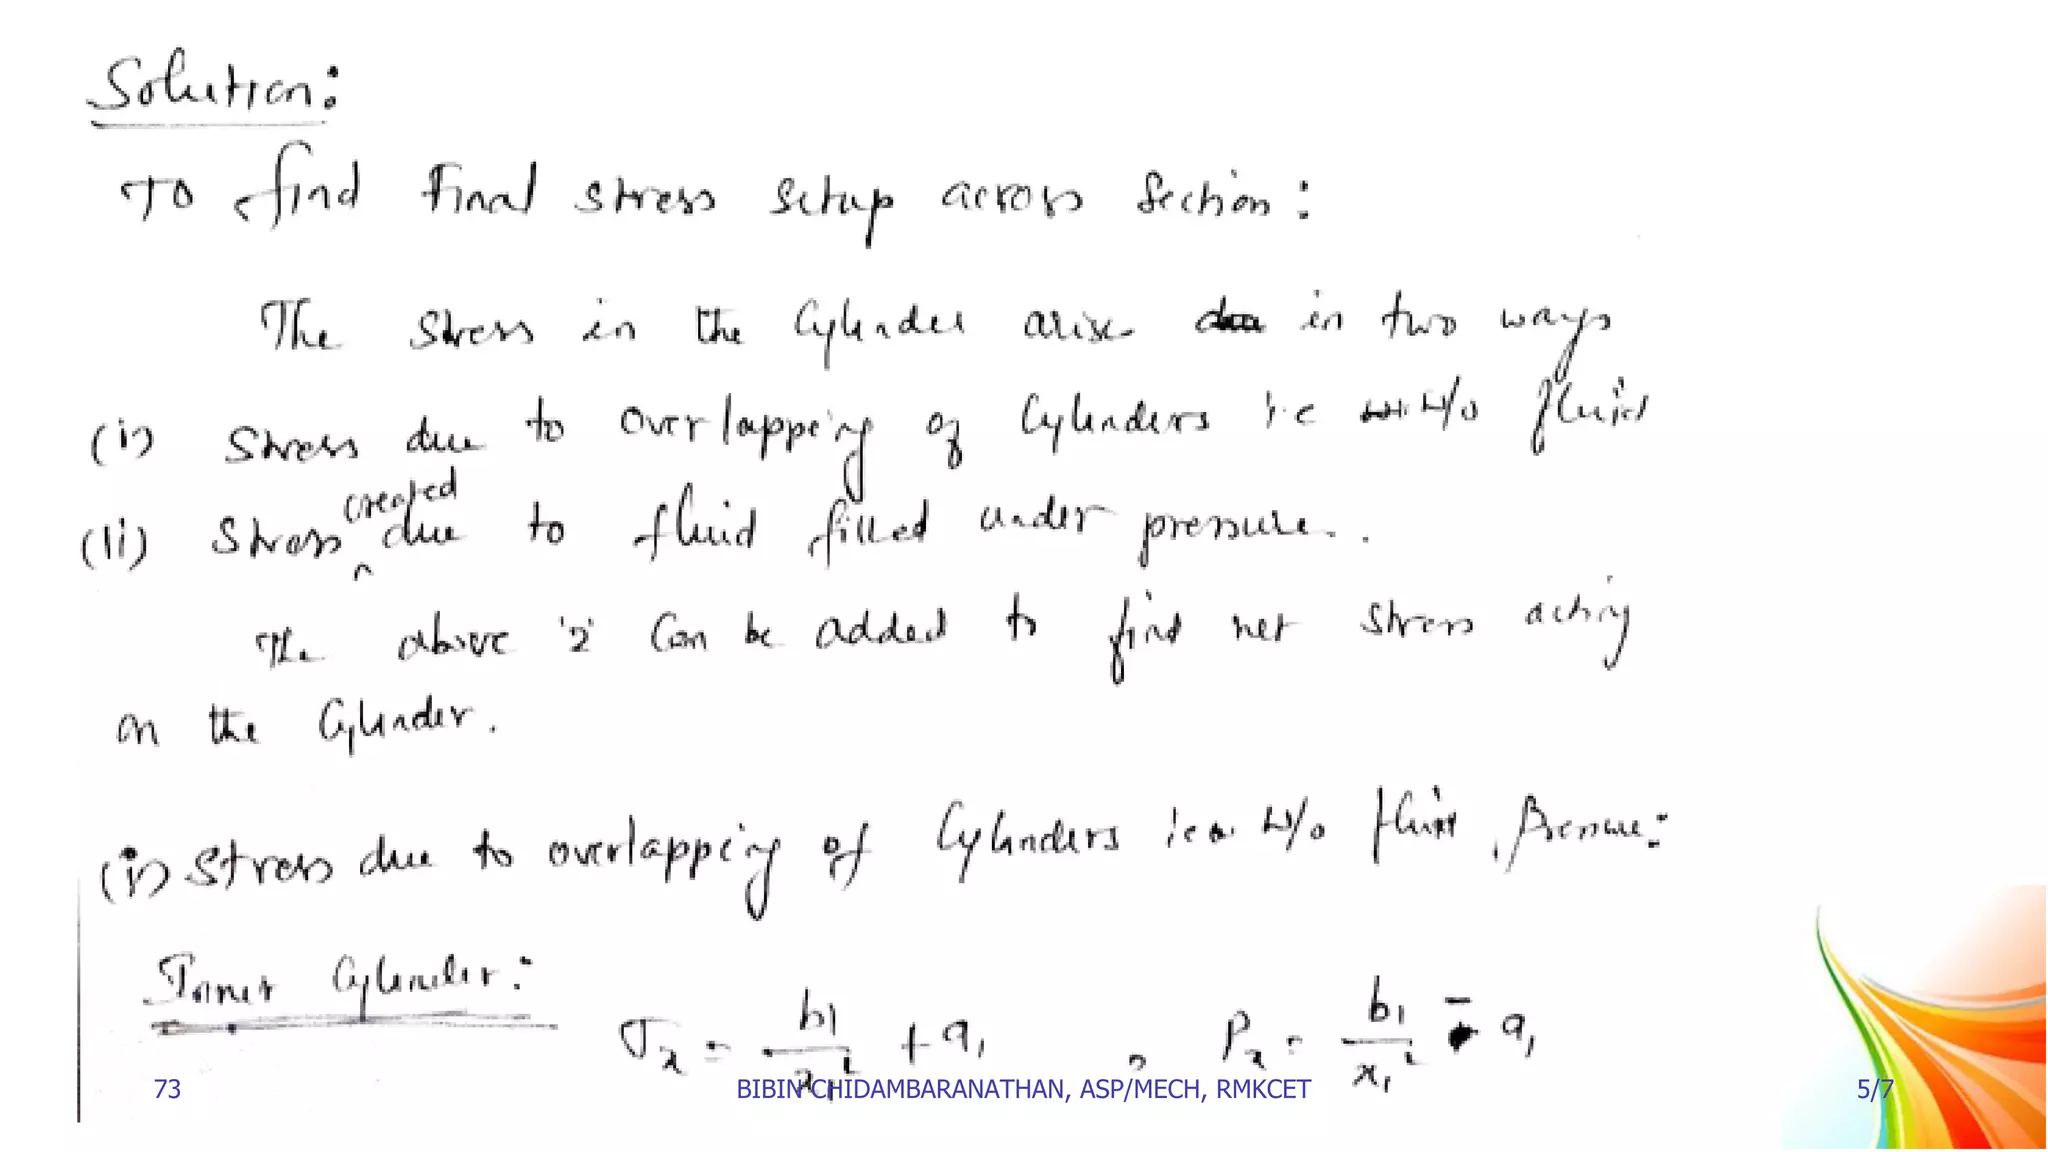 Solution:
To find Final stress setup across Section:
The stress in the Cylinder arise in two ways
(i) Stress due to Overlapping of Cylinders i.e w/o fluid
(ii) Stress created due to fluid filled under pressure..
The above '2' Can be added to find net stress acting
on the Cylinder.
(i) Stress due to overlapping of Cylinders i.e w/o fluid Pressure:
Inner Cylinder:
σx = b1/x1² + a1 , Px = b1/x1² - a1
73 BIBIN CHIDAMBARANATHAN, ASP/MECH, RMKCET 5/7